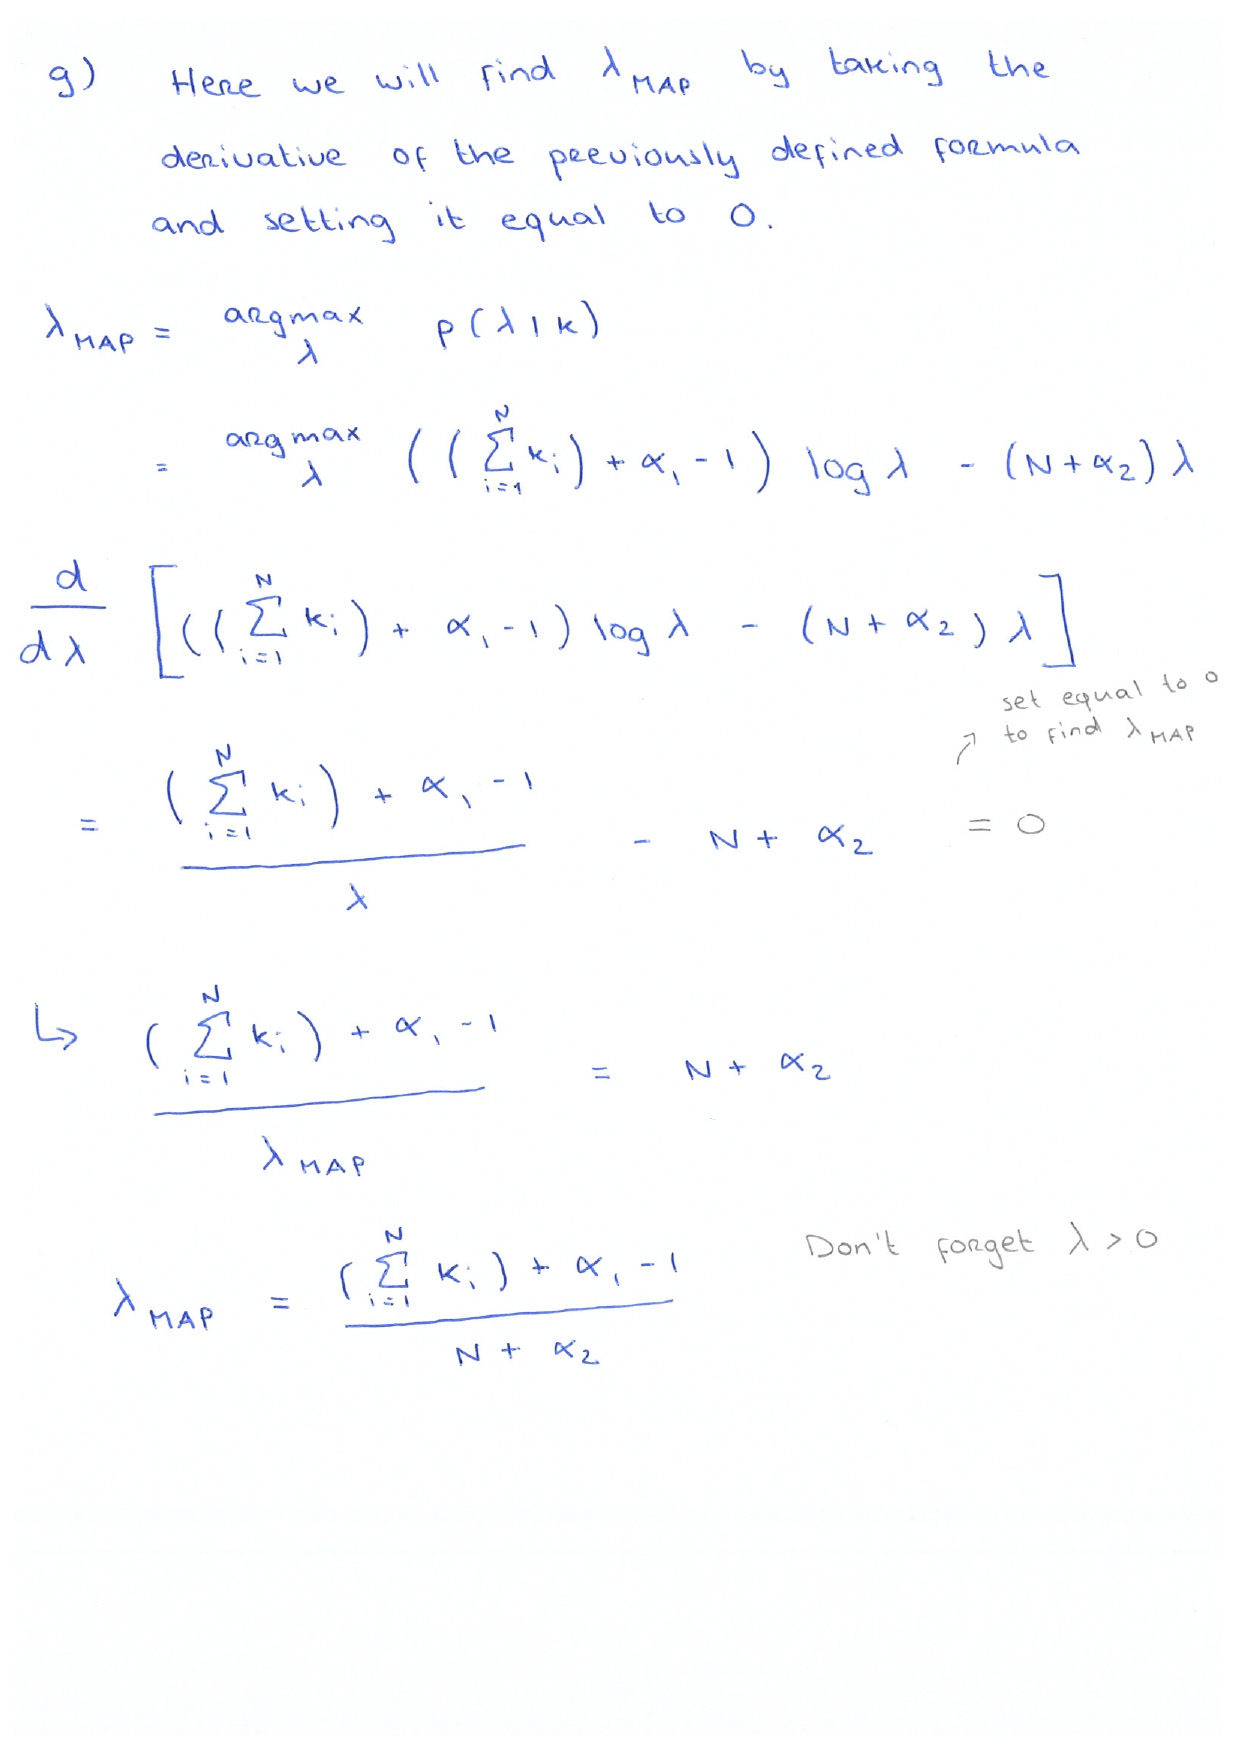 g) Here we will find λ_MAP by taking the
derivative of the previously defined formula
and setting it equal to 0.
λ_MAP = argmax_λ p(λ|k)
= argmax_λ ((∑_{i=1}^{N} k_i) + α_1 - 1) log λ - (N + α_2) λ
d/dλ [((∑_{i=1}^{N} k_i) + α_1 - 1) log λ - (N + α_2) λ]
set equal to 0
↗ to find λ_MAP
= ((∑_{i=1}^{N} k_i) + α_1 - 1) / λ - N + α_2 = 0
↳ ((∑_{i=1}^{N} k_i) + α_1 - 1) / λ_MAP = N + α_2
Don't forget λ > 0
λ_MAP = ((∑_{i=1}^{N} k_i) + α_1 - 1) / (N + α_2)